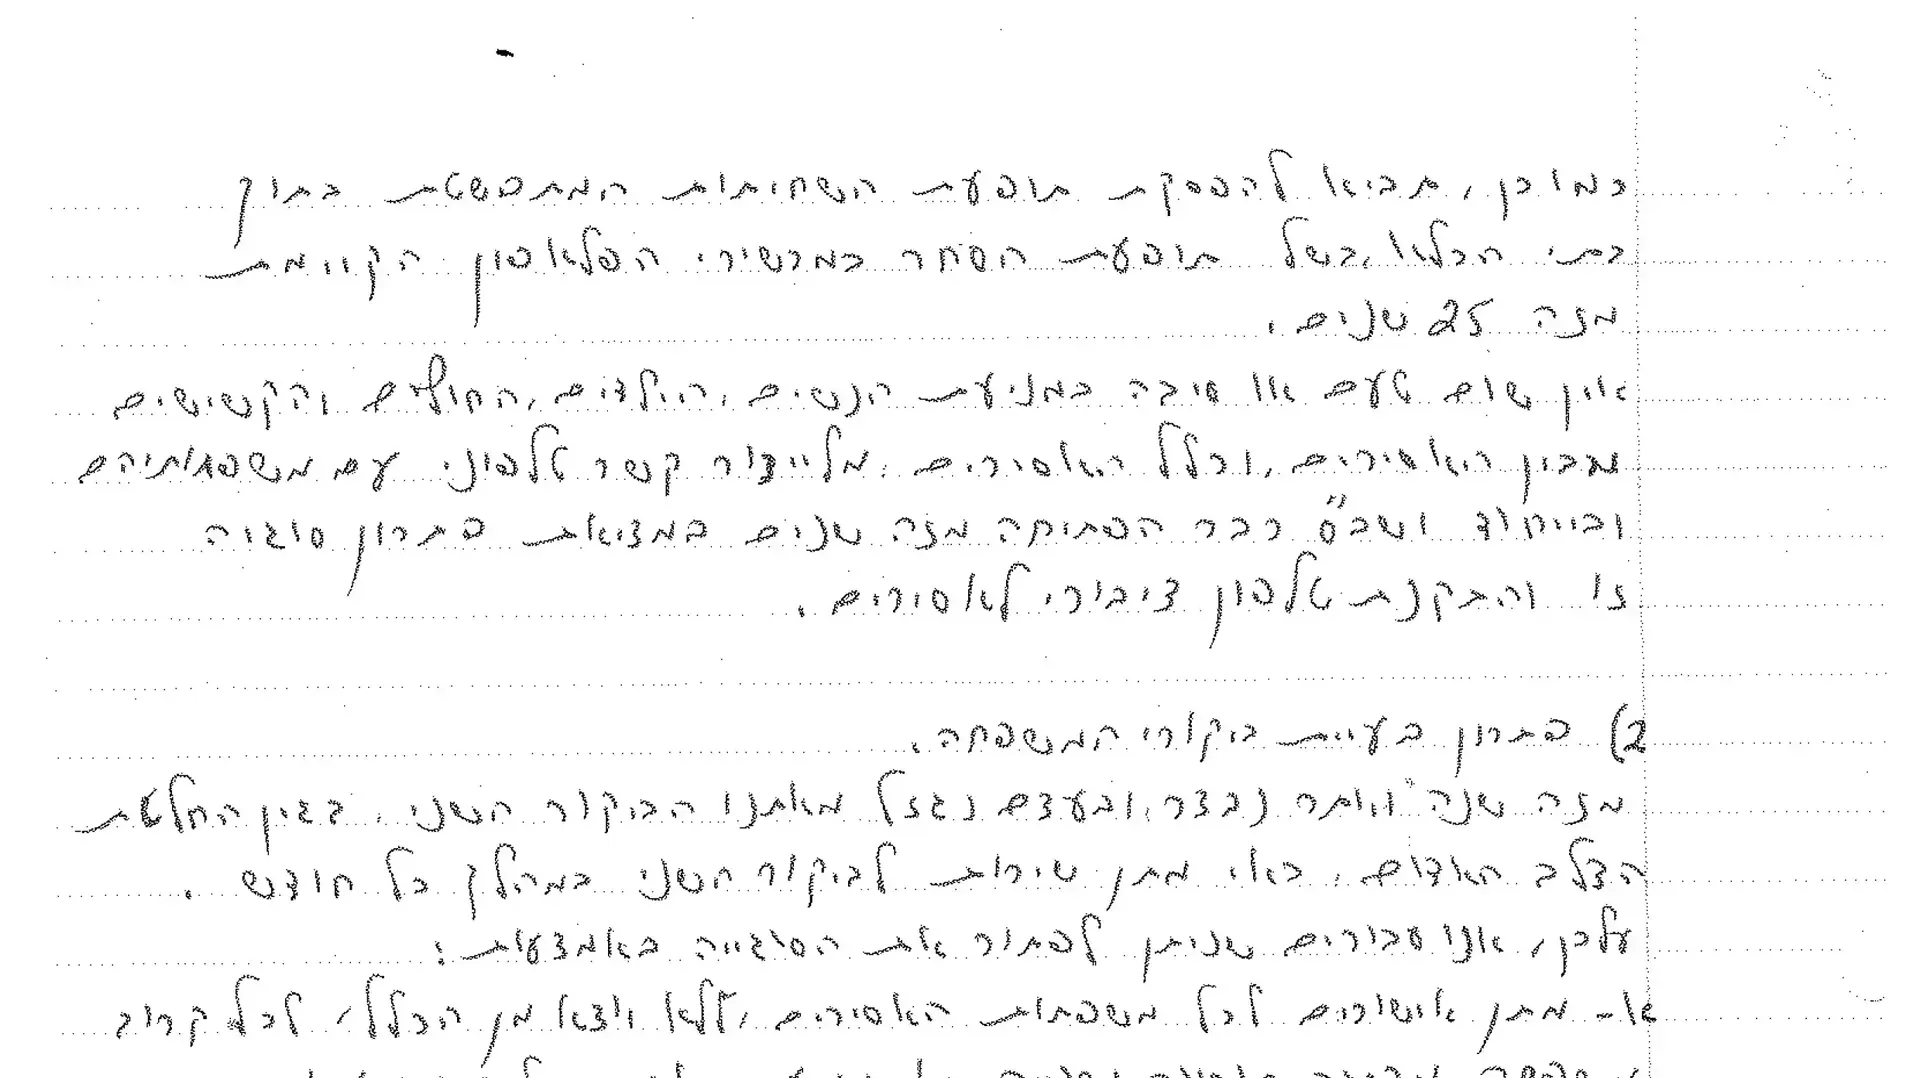 כמובן, תביא להפסקת תופעת השחיתות המתפשטת בתוך
בתי הכלא, בשל תופעת הסחר במכשירי הפלאפון הקיימת
מזה 25 שנים.
אין שום טעם או סיבה במניעת הנשים, הילדים, החולים והקשישים
מבין האסירים, וכלל האסירים, מלייצור קשר טלפוני עם משפחותיהם
ובייחוד ושב"ס כבר הפתיחה מזה שנים במציאת פתרון סוגיה
זו והתקנת טלפון ציבורי לאסירים.
2) פתרון בעיית ביקורי המשפחה.
מזה שנה ויותר נבצר, ובעצם נגזל מאתנו הביקור השני, בגין החלטת
הצלב האדום, באי מתן שירות לביקור השני במהלך כל חודש.
עלכן, אנו סבורים שניתן לפתור את הסוגייה באמצעות:
א- מתן אישורים לכל משפחות האסירים, ללא יוצא מן הכלל, לכל קרוב